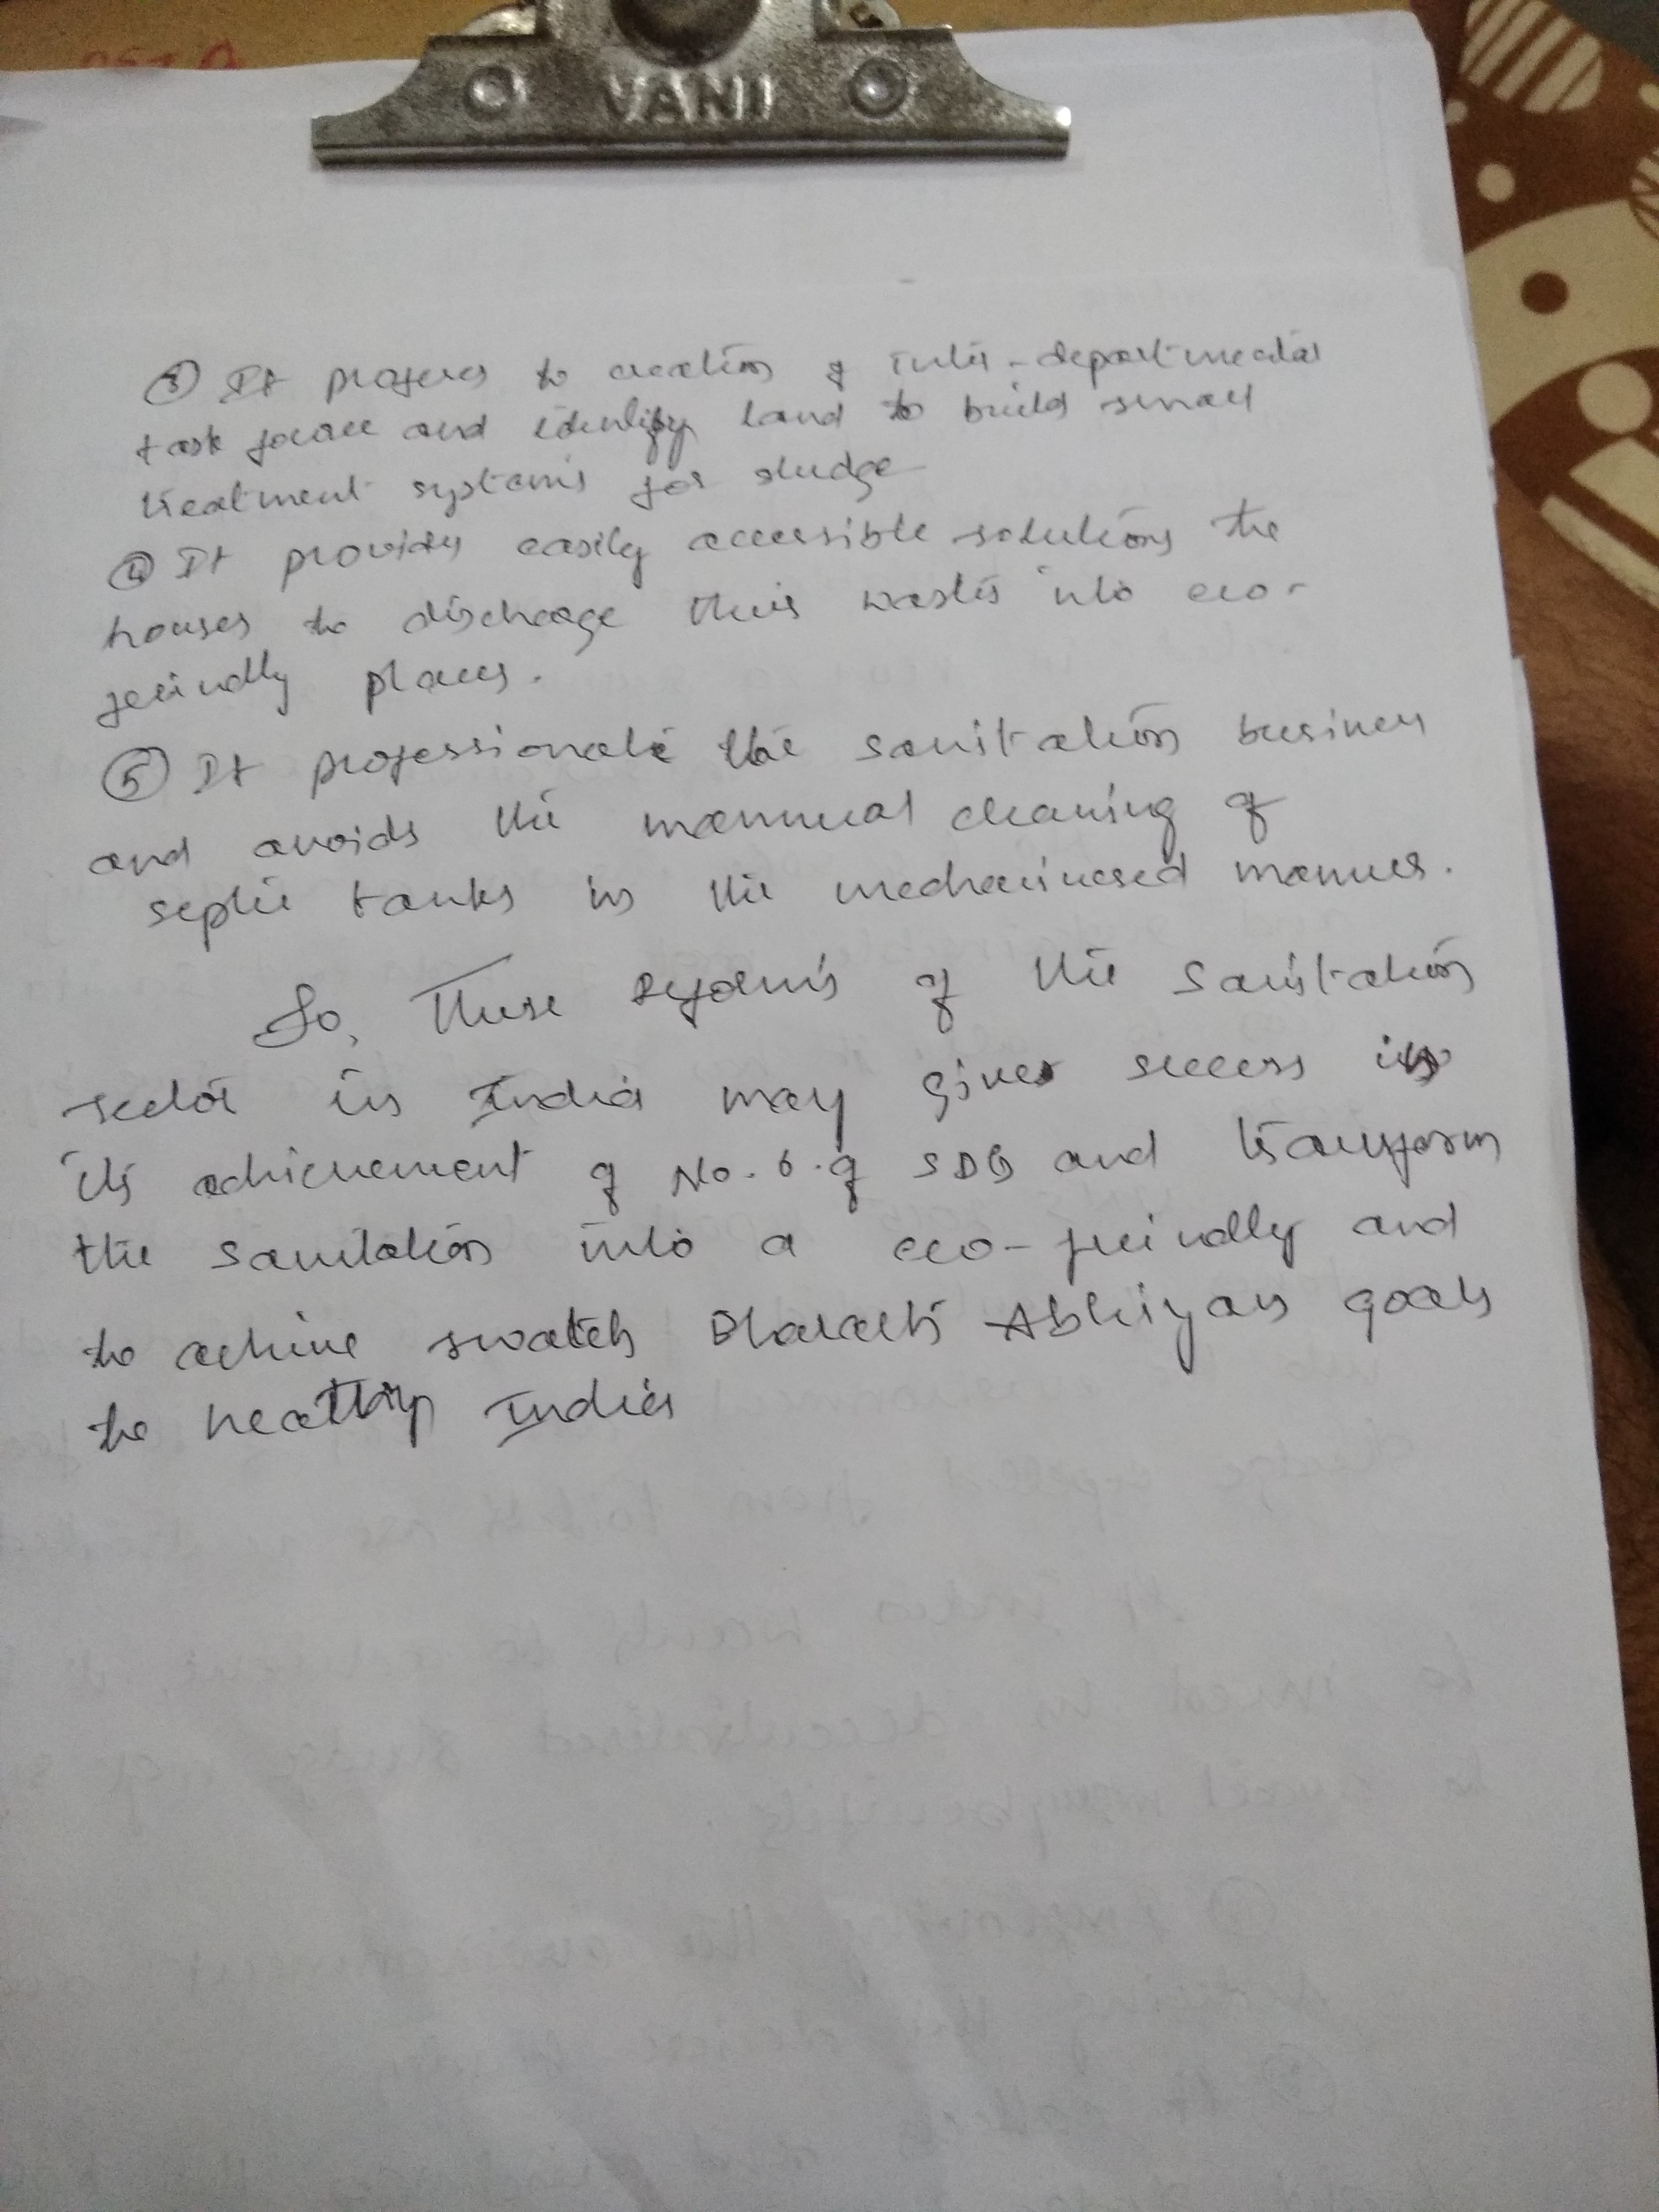 VANI
③ It prefers to creation of inter-departmental
task force and identify land to build small
treatment systems for sludge
④ It provides easily accessible solutions the
houses to discharge their wastes into eco-
freindly places.
⑤ It professionale the sanitation business
and avoids the mannual cleaning of
septic tanks in the mechanicesed manner.
So, These reforms of the sanitation
sector in India may gives success in
its achievement of No. 6 of SDG and transform
the sanitation into a eco-freindly and
to achive swatch Bharath Abhiyan goals
to healthy India